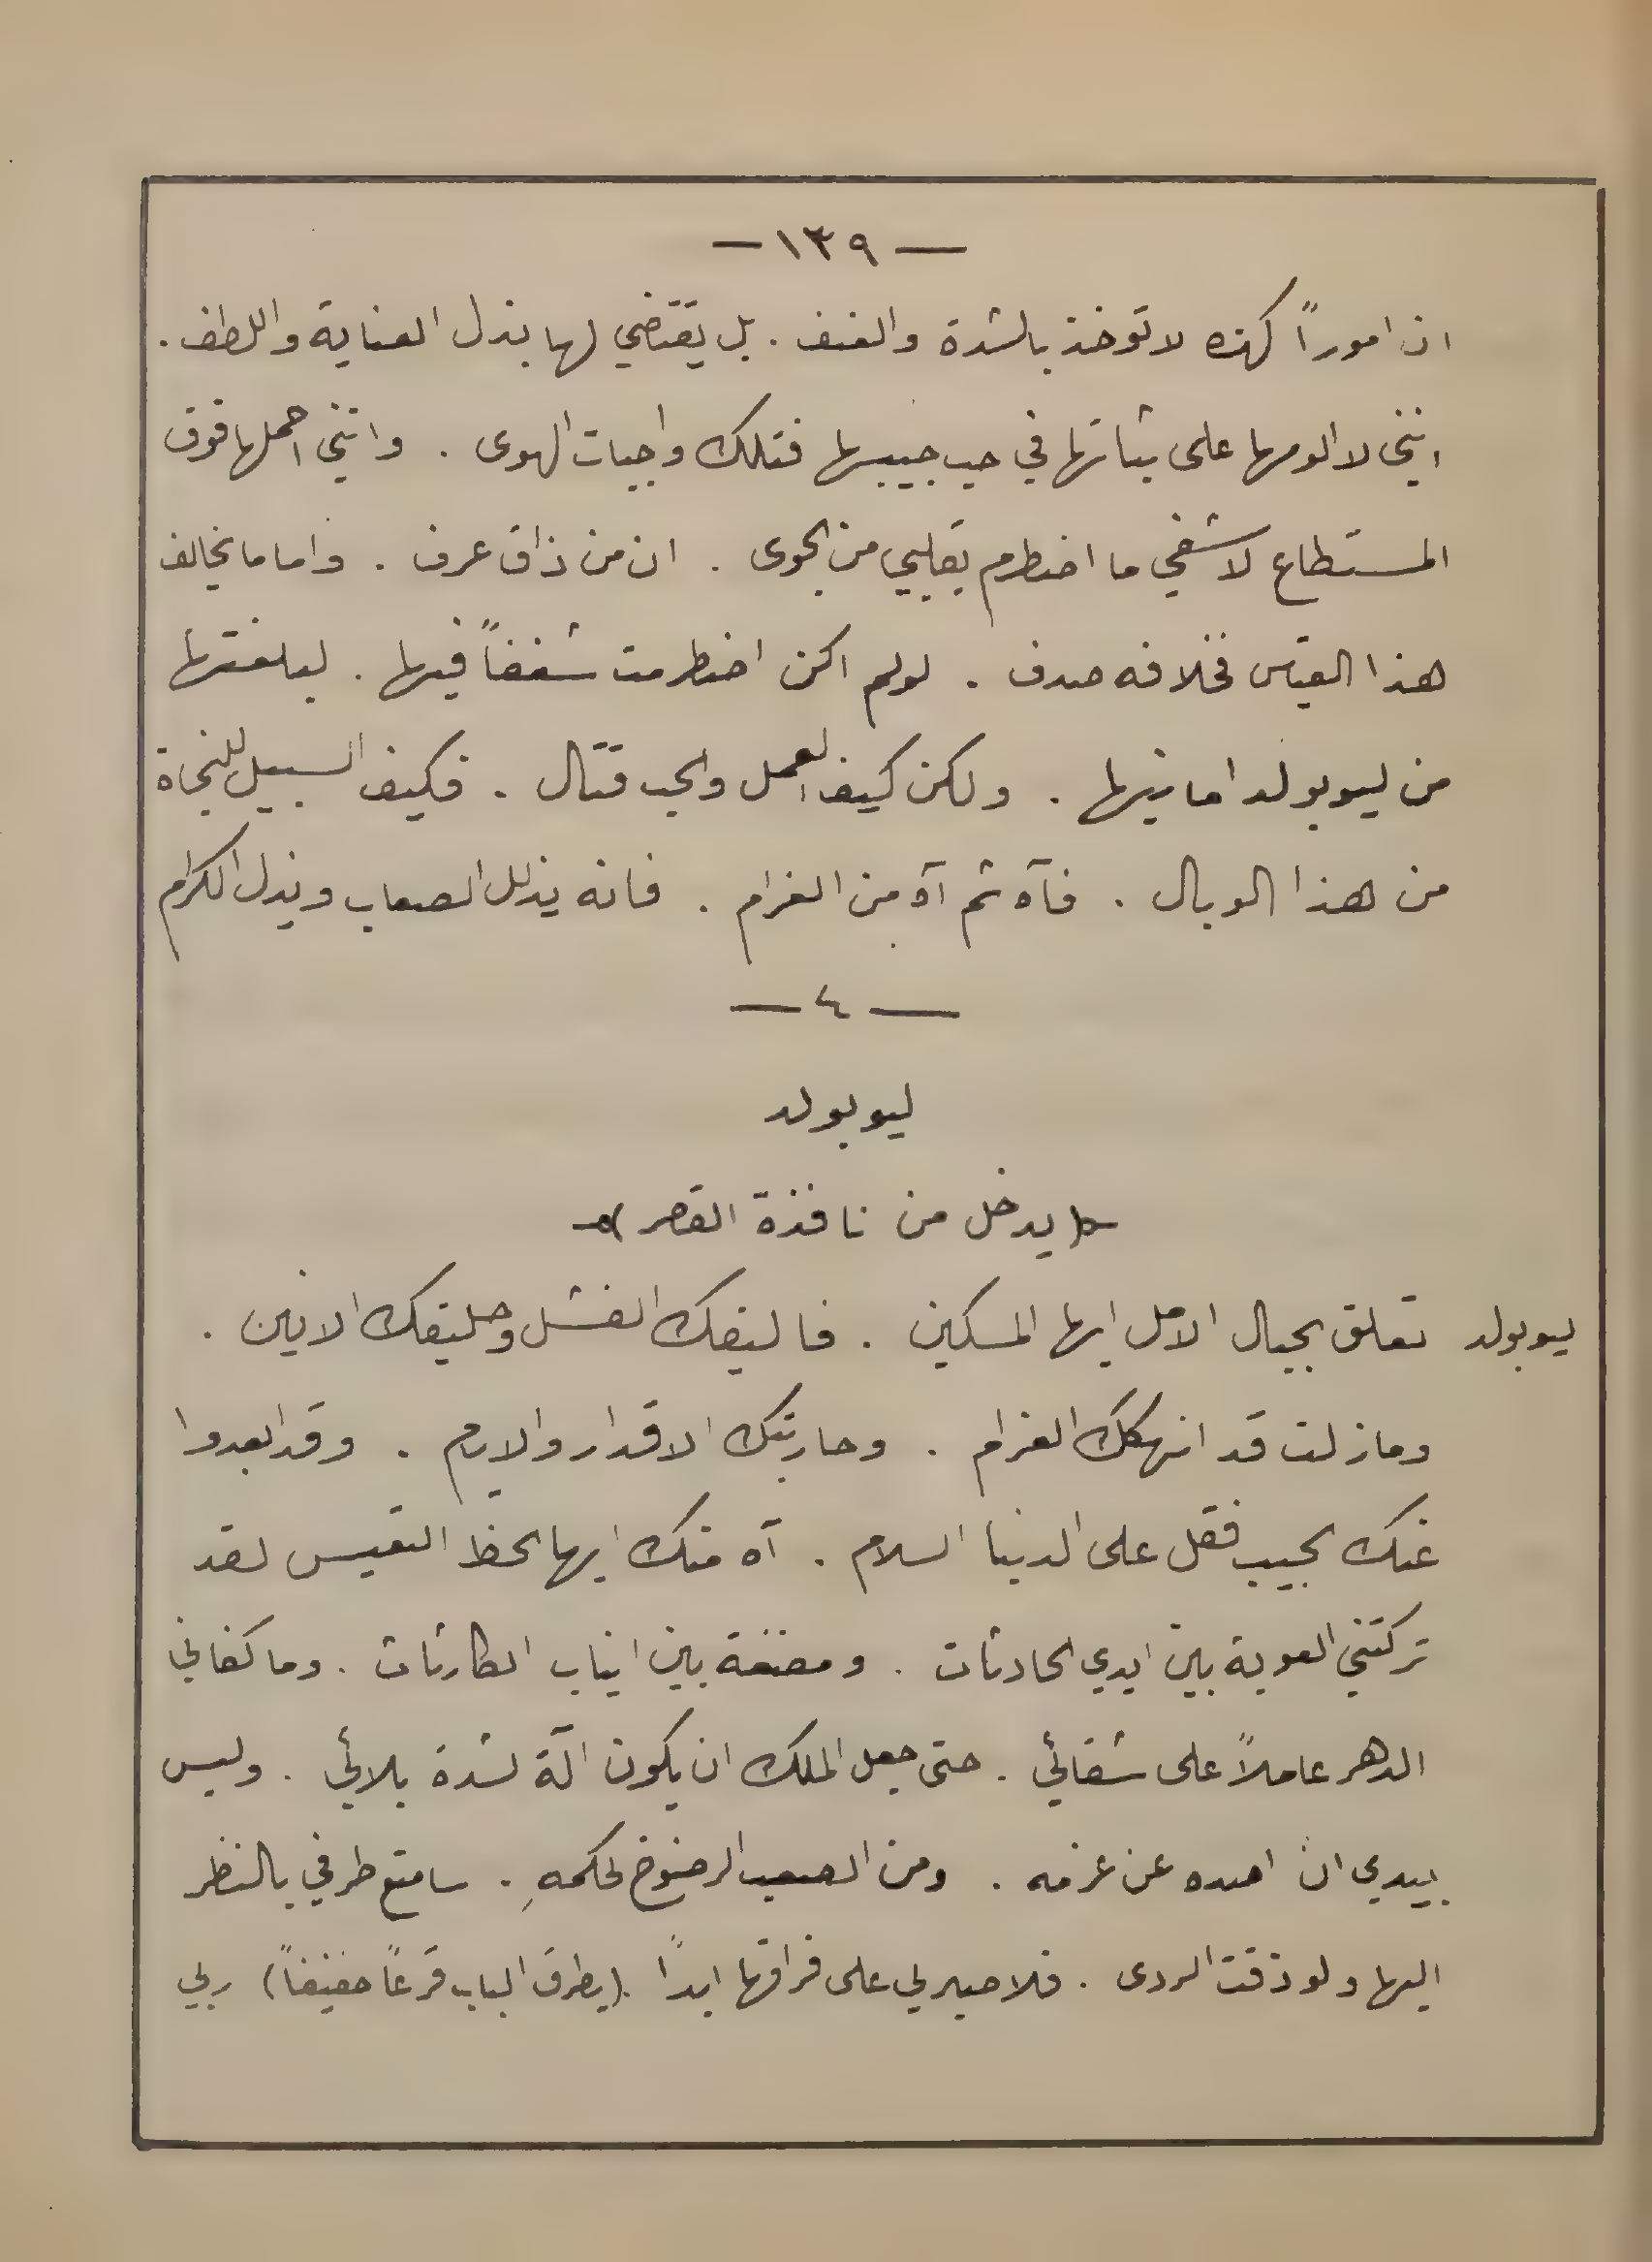 — ١٣٩ —
ان اموراً كهذه لا توخذ بالشدة والعنف . بل يقتضي لها بذل العناية واللطف .
انني لا الومها على ثباتها في حب حبيبها فتلك واجبات الهوى . وانني احملها فوق
المستطاع لاشفي ما اضطرم بقلبي من الجوى . ان من ذاق عرف . واما ما يخالف
هذا القياس فخلافه صدف . لو لم اكن اضطرمت شغفاً فيها . لبلغتها
من ليوبولد امانيها . ولكن كيف العمل والحب قتال . فكيف السبيل للنجاة
من هذا الوبال . فآه ثم آه من الغرام . فانه يذلل الصعاب ويذل الكرام
— ٤ —
ليوبولد
(يدخل من نافذة القصر)
ليوبولد تعلق بحبال الامل ايها المسكين . فاليفك الفشل وحليفك الانين .
وما زلت قد انهكك الغرام . وحاربتك الاقدار والايام . وقد ابعدوا
عنك الحبيب فقل على الدنيا السلام . آه منك ايها الحظ التعيس لقد
تركتني العوبة بين ايدي الحادثات . ومضغة بين انياب الكارثات . وما كفاني
الدهر عاملاً على شقائي . حتى جعل الملك ان يكون آلة لشدة بلائي . وليس
بيدي ان اصده عن عزمه . ومن الصعب الرضوخ لحكمهِ . سامتع طرفي بالنظر
اليها ولو ذقت الردى . فلا صبر لي على فراقها ابداً . (يطرق الباب قرعاً خفيفاً) ربي